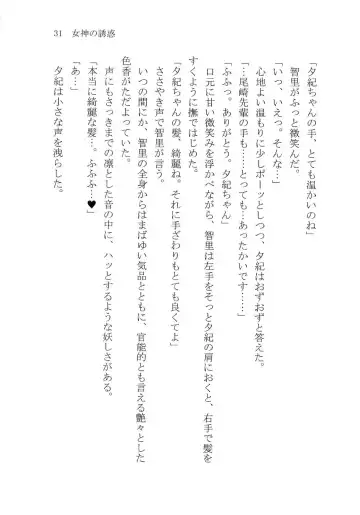 31　女神の誘惑
「夕紀ちゃんの手、とても温かいのね」
智里がふっと微笑んだ。
「いっ、いえっ。そんな…………」
心地よい温もりに少しボーッとしつつ、夕紀はおずおずと答えた。
「尾崎先輩の手も……とっても…あったかいです……」
「ふふっ。ありがとう。夕紀ちゃん」
口元に甘い微笑みを浮かべながら、智里は左手をそっと夕紀の肩におくと、右手で髪を
撫ではじめた。
「夕紀ちゃんの髪、綺麗ね。それに手ざわりもとても良くてよ」
ささやき声で智里が言う。
いつの間にか、智里の全身からはまばゆい気品とともに、官能的とも言える艶々とした
色香がただよっていた。
声にもさっきまでの凛とした音の中に、ハッとするような妖しさがある。
「本当に綺麗な髪…。ふふふ…♥」
「あ…」
夕紀は小さな声を洩らした。